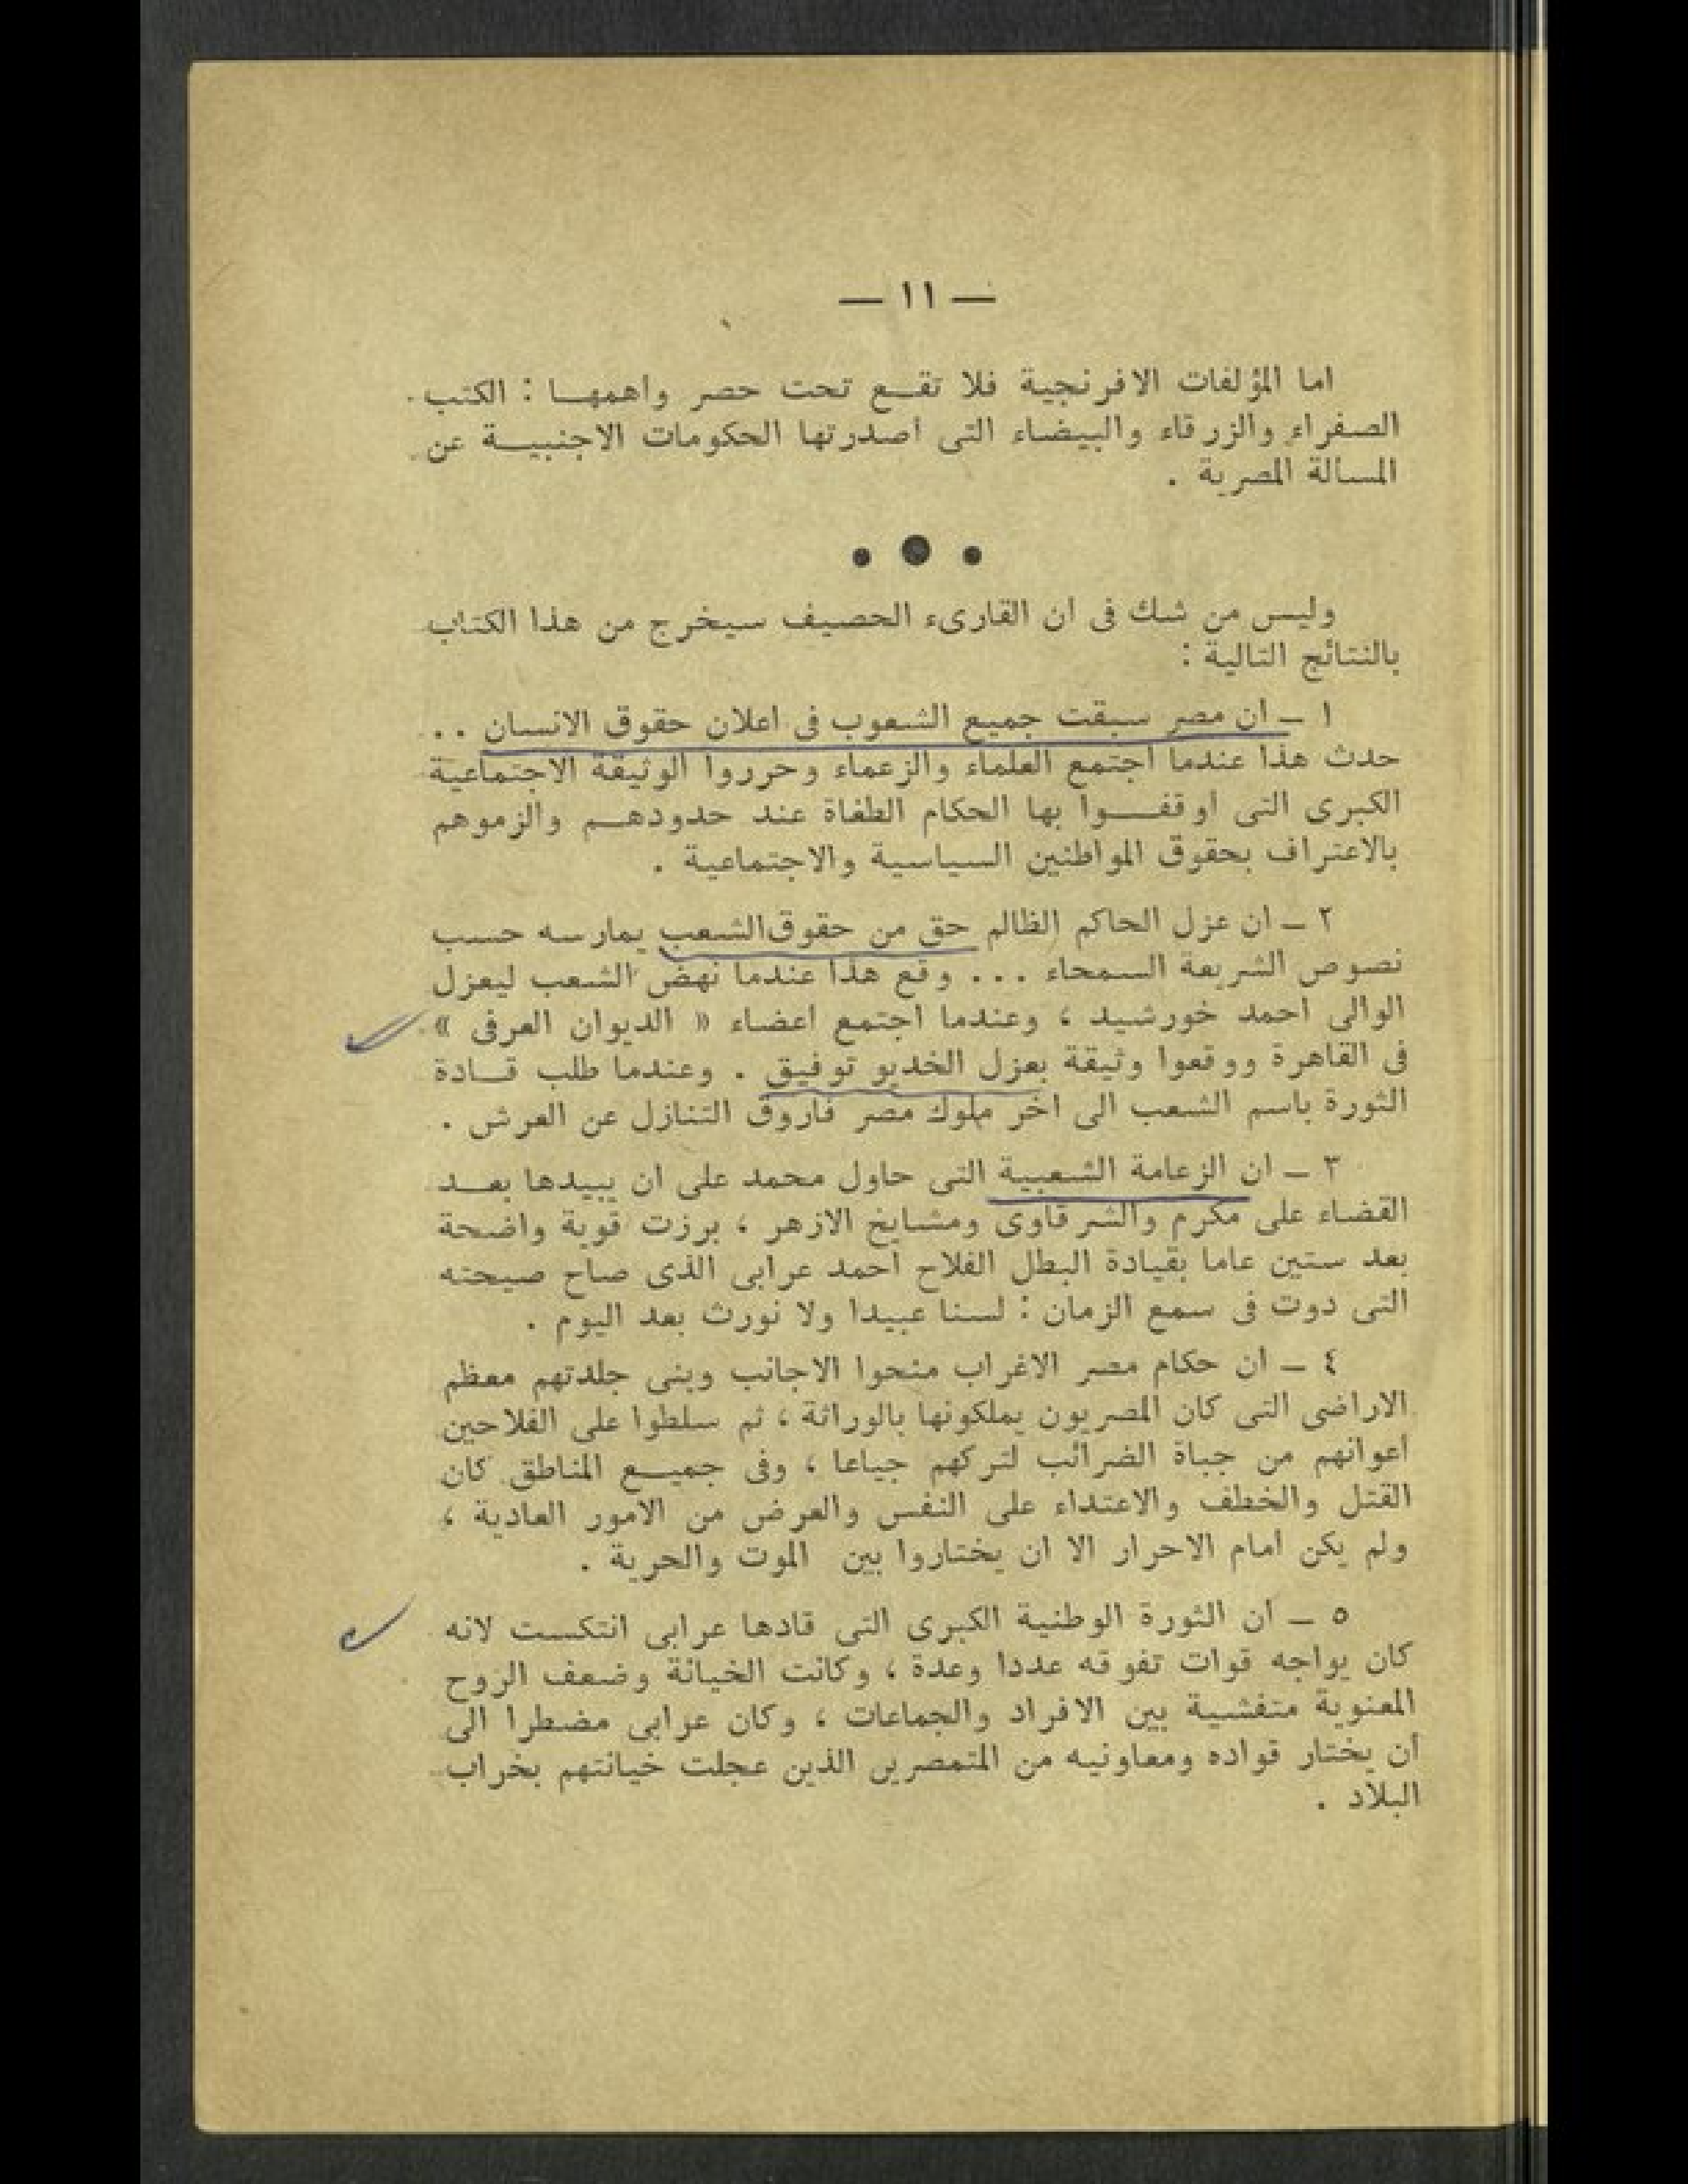 — ١١ —
اما المؤلفات الافرنجية فلا تقـع تحت حصر واهمهـا : الكتب
الصفراء والزرقاء والبيضاء التى أصدرتها الحكومات الاجنبيـة عن
المسألة المصرية .
• ● •
وليس من شك فى أن القارىء الحصيف سيخرج من هذا الكتاب
بالنتائج التالية :
١ — أن مصر سبقت جميع الشعوب فى اعلان حقوق الانسان ..
حدث هذا عندما اجتمع العلماء والزعماء وحرروا الوثيقة الاجتماعية
الكبرى التى أوقفـوا بها الحكام الطغاة عند حدودهـم والزموهم
بالاعتراف بحقوق المواطنين السياسية والاجتماعية .
٢ — ان عزل الحاكم الظالم حق من حقوق الشعب يمارسه حسب
نصوص الشريعة السمحاء ... وقع هذا عندما نهض الشعب ليعزل
الوالى أحمد خورشيد ، وعندما اجتمع أعضاء « الديوان العرفى »
فى القاهرة ووقعوا وثيقة بعزل الخديو توفيق . وعندما طلب قـادة
الثورة باسم الشعب الى آخر ملوك مصر فاروق التنازل عن العرش .
٣ — ان الزعامة الشعبية التى حاول محمد على أن يبيدها بعـد
القضاء على مكرم والشرقاوى ومشايخ الازهر ، برزت قوية واضحة
بعد ستين عاما بقيادة البطل الفلاح أحمد عرابى الذى صاح صيحته
التى دوت فى سمع الزمان : لسنا عبيدا ولا نورث بعد اليوم .
٤ — أن حكام مصر الاغراب منحوا الاجانب وبنى جلدتهم معظم
الاراضى التى كان المصريون يملكونها بالوراثة ، ثم سلطوا على الفلاحين
أعوانهم من جباة الضرائب لتركهم جياعا ، وفى جميـع المناطق كان
القتل والخطف والاعتداء على النفس والعرض من الأمور العادية ،
ولم يكن أمام الاحرار الا أن يختاروا بين الموت والحرية .
٥ — أن الثورة الوطنية الكبرى التى قادها عرابى انتكست لانه
كان يواجه قوات تفوقه عددا وعدة ، وكانت الخيانة وضعف الروح
المعنوية متفشية بين الافراد والجماعات ، وكان عرابى مضطرا الى
أن يختار قواده ومعاونيه من المتمصرين الذين عجلت خيانتهم بخراب
البلاد .